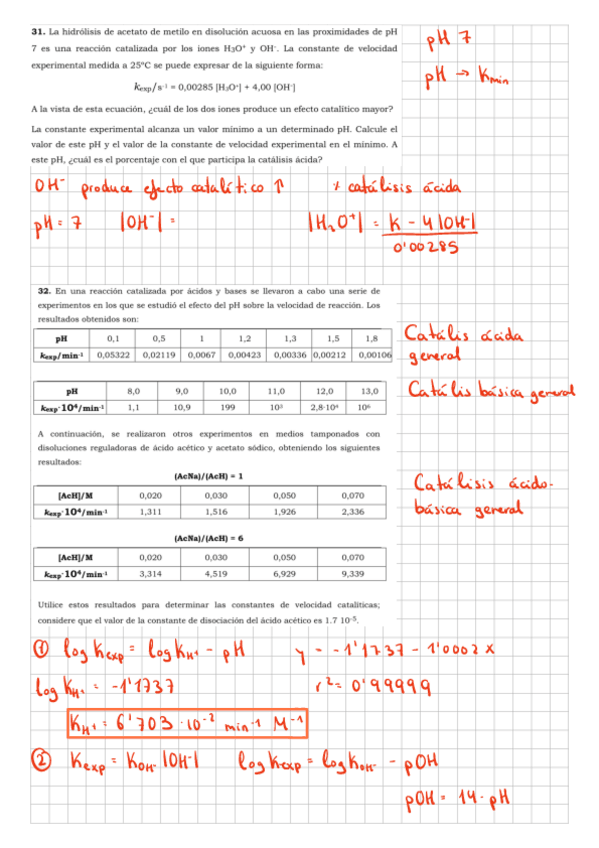 31. La hidrólisis de acetato de metilo en disolución acuosa en las proximidades de pH
7 es una reacción catalizada por los iones H₃O⁺ y OH⁻. La constante de velocidad
experimental medida a 25ºC se puede expresar de la siguiente forma:
kexp/s⁻¹ = 0,00285 [H₃O⁺] + 4,00 [OH⁻]
A la vista de esta ecuación, ¿cuál de los dos iones produce un efecto catalítico mayor?
La constante experimental alcanza un valor mínimo a un determinado pH. Calcule el
valor de este pH y el valor de la constante de velocidad experimental en el mínimo. A
este pH, ¿cuál es el porcentaje con el que participa la catálisis ácida?
pH 7
pH → Kmin
OH⁻ produce efecto catalítico ↑
% catálisis ácida
pH = 7 |OH⁻| =
|H₃O⁺| = K - 4|OH⁻|
0'00285
32. En una reacción catalizada por ácidos y bases se llevaron a cabo una serie de
experimentos en los que se estudió el efecto del pH sobre la velocidad de reacción. Los
resultados obtenidos son:
pH 0,1 0,5 1 1,2 1,3 1,5 1,8
kexp/min⁻¹ 0,05322 0,02119 0,0067 0,00423 0,00336 0,00212 0,00106
Catális ácida
general
pH 8,0 9,0 10,0 11,0 12,0 13,0
kexp·10⁴/min⁻¹ 1,1 10,9 199 10³ 2,8·10⁴ 10⁶
Catális básica general
A continuación, se realizaron otros experimentos en medios tamponados con
disoluciones reguladoras de ácido acético y acetato sódico, obteniendo los siguientes
resultados:
(AcNa)/(AcH) = 1
[AcH]/M 0,020 0,030 0,050 0,070
kexp·10⁴/min⁻¹ 1,311 1,516 1,926 2,336
Catálisis ácido-
básica general
(AcNa)/(AcH) = 6
[AcH]/M 0,020 0,030 0,050 0,070
kexp·10⁴/min⁻¹ 3,314 4,519 6,929 9,339
Utilice estos resultados para determinar las constantes de velocidad catalíticas;
considere que el valor de la constante de disociación del ácido acético es 1.7 10⁻⁵.
① log Kexp = log KH+ - pH y = -1'1737 - 1'0002 x
log KH+ = -1'1737 r² = 0'99999
KH+ = 6'703 · 10⁻² min⁻¹ M⁻¹
② Kexp = KOH⁻ |OH⁻| log Kexp = log KOH⁻ - pOH
pOH = 14 - pH